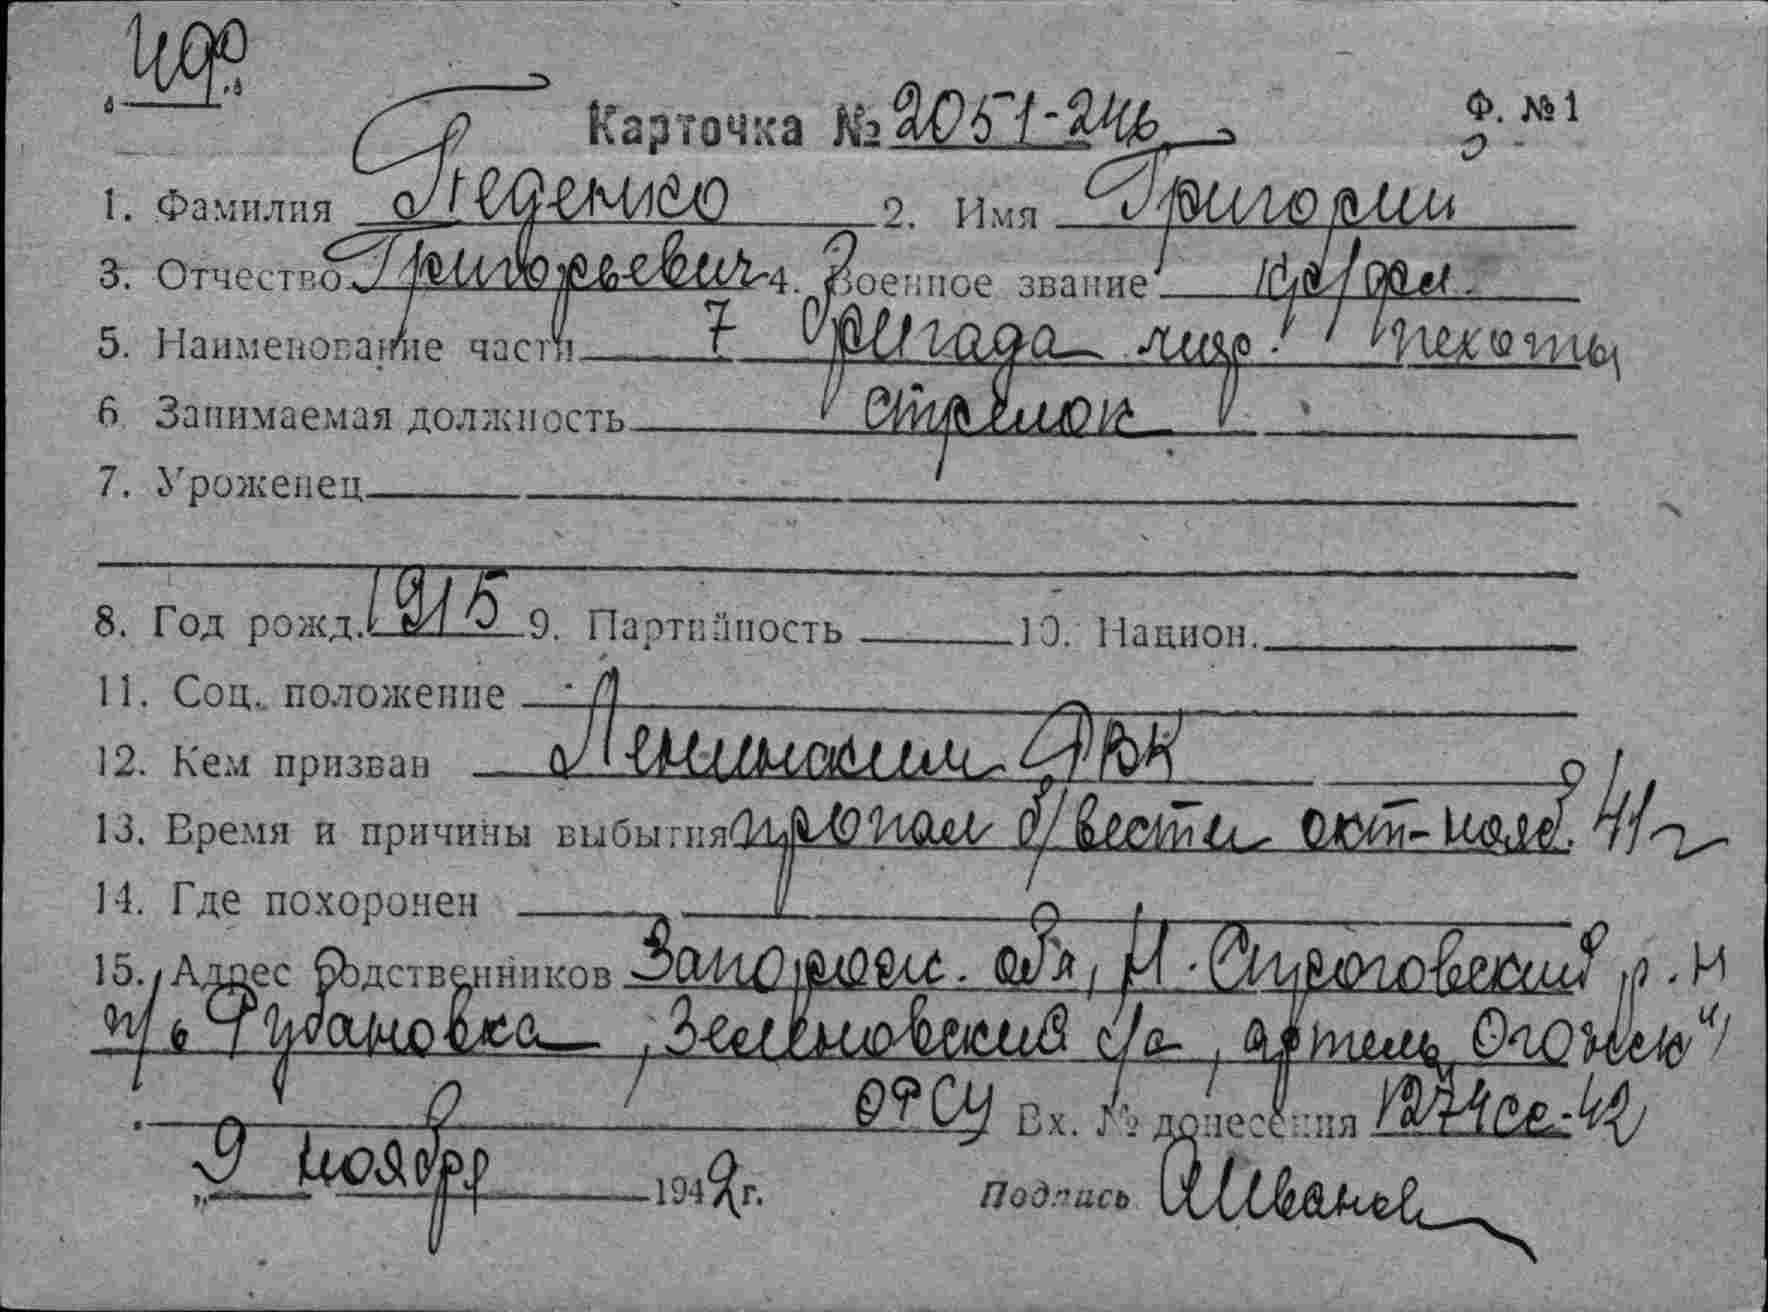 Карточка № 2051-24в Ф. № 1
1. Фамилия Геденко 2. Имя Григории
3. Отчество Григорьевич 4. Военное звание
5. Наименование части 7 бригада мор. пехоты
6 Занимаемая должность стрелок
7. Уроженец
8. Год рожд. 1915 9. Партийность 10. Национ.
11. Соц. положение
12. Кем призван Ленинским РВК
13. Время и причины выбытия пропал б/вести окт-нояб. 41 г
14. Где похоронен
15. Адрес родственников Запорож. обл, Н. Сироговский р. н
п/о Рубановка, Зеленовский с/с, артель Огонек"
Вх. № донесения 1274сс-42
9 ноября 1942 г. Подпись АИванов